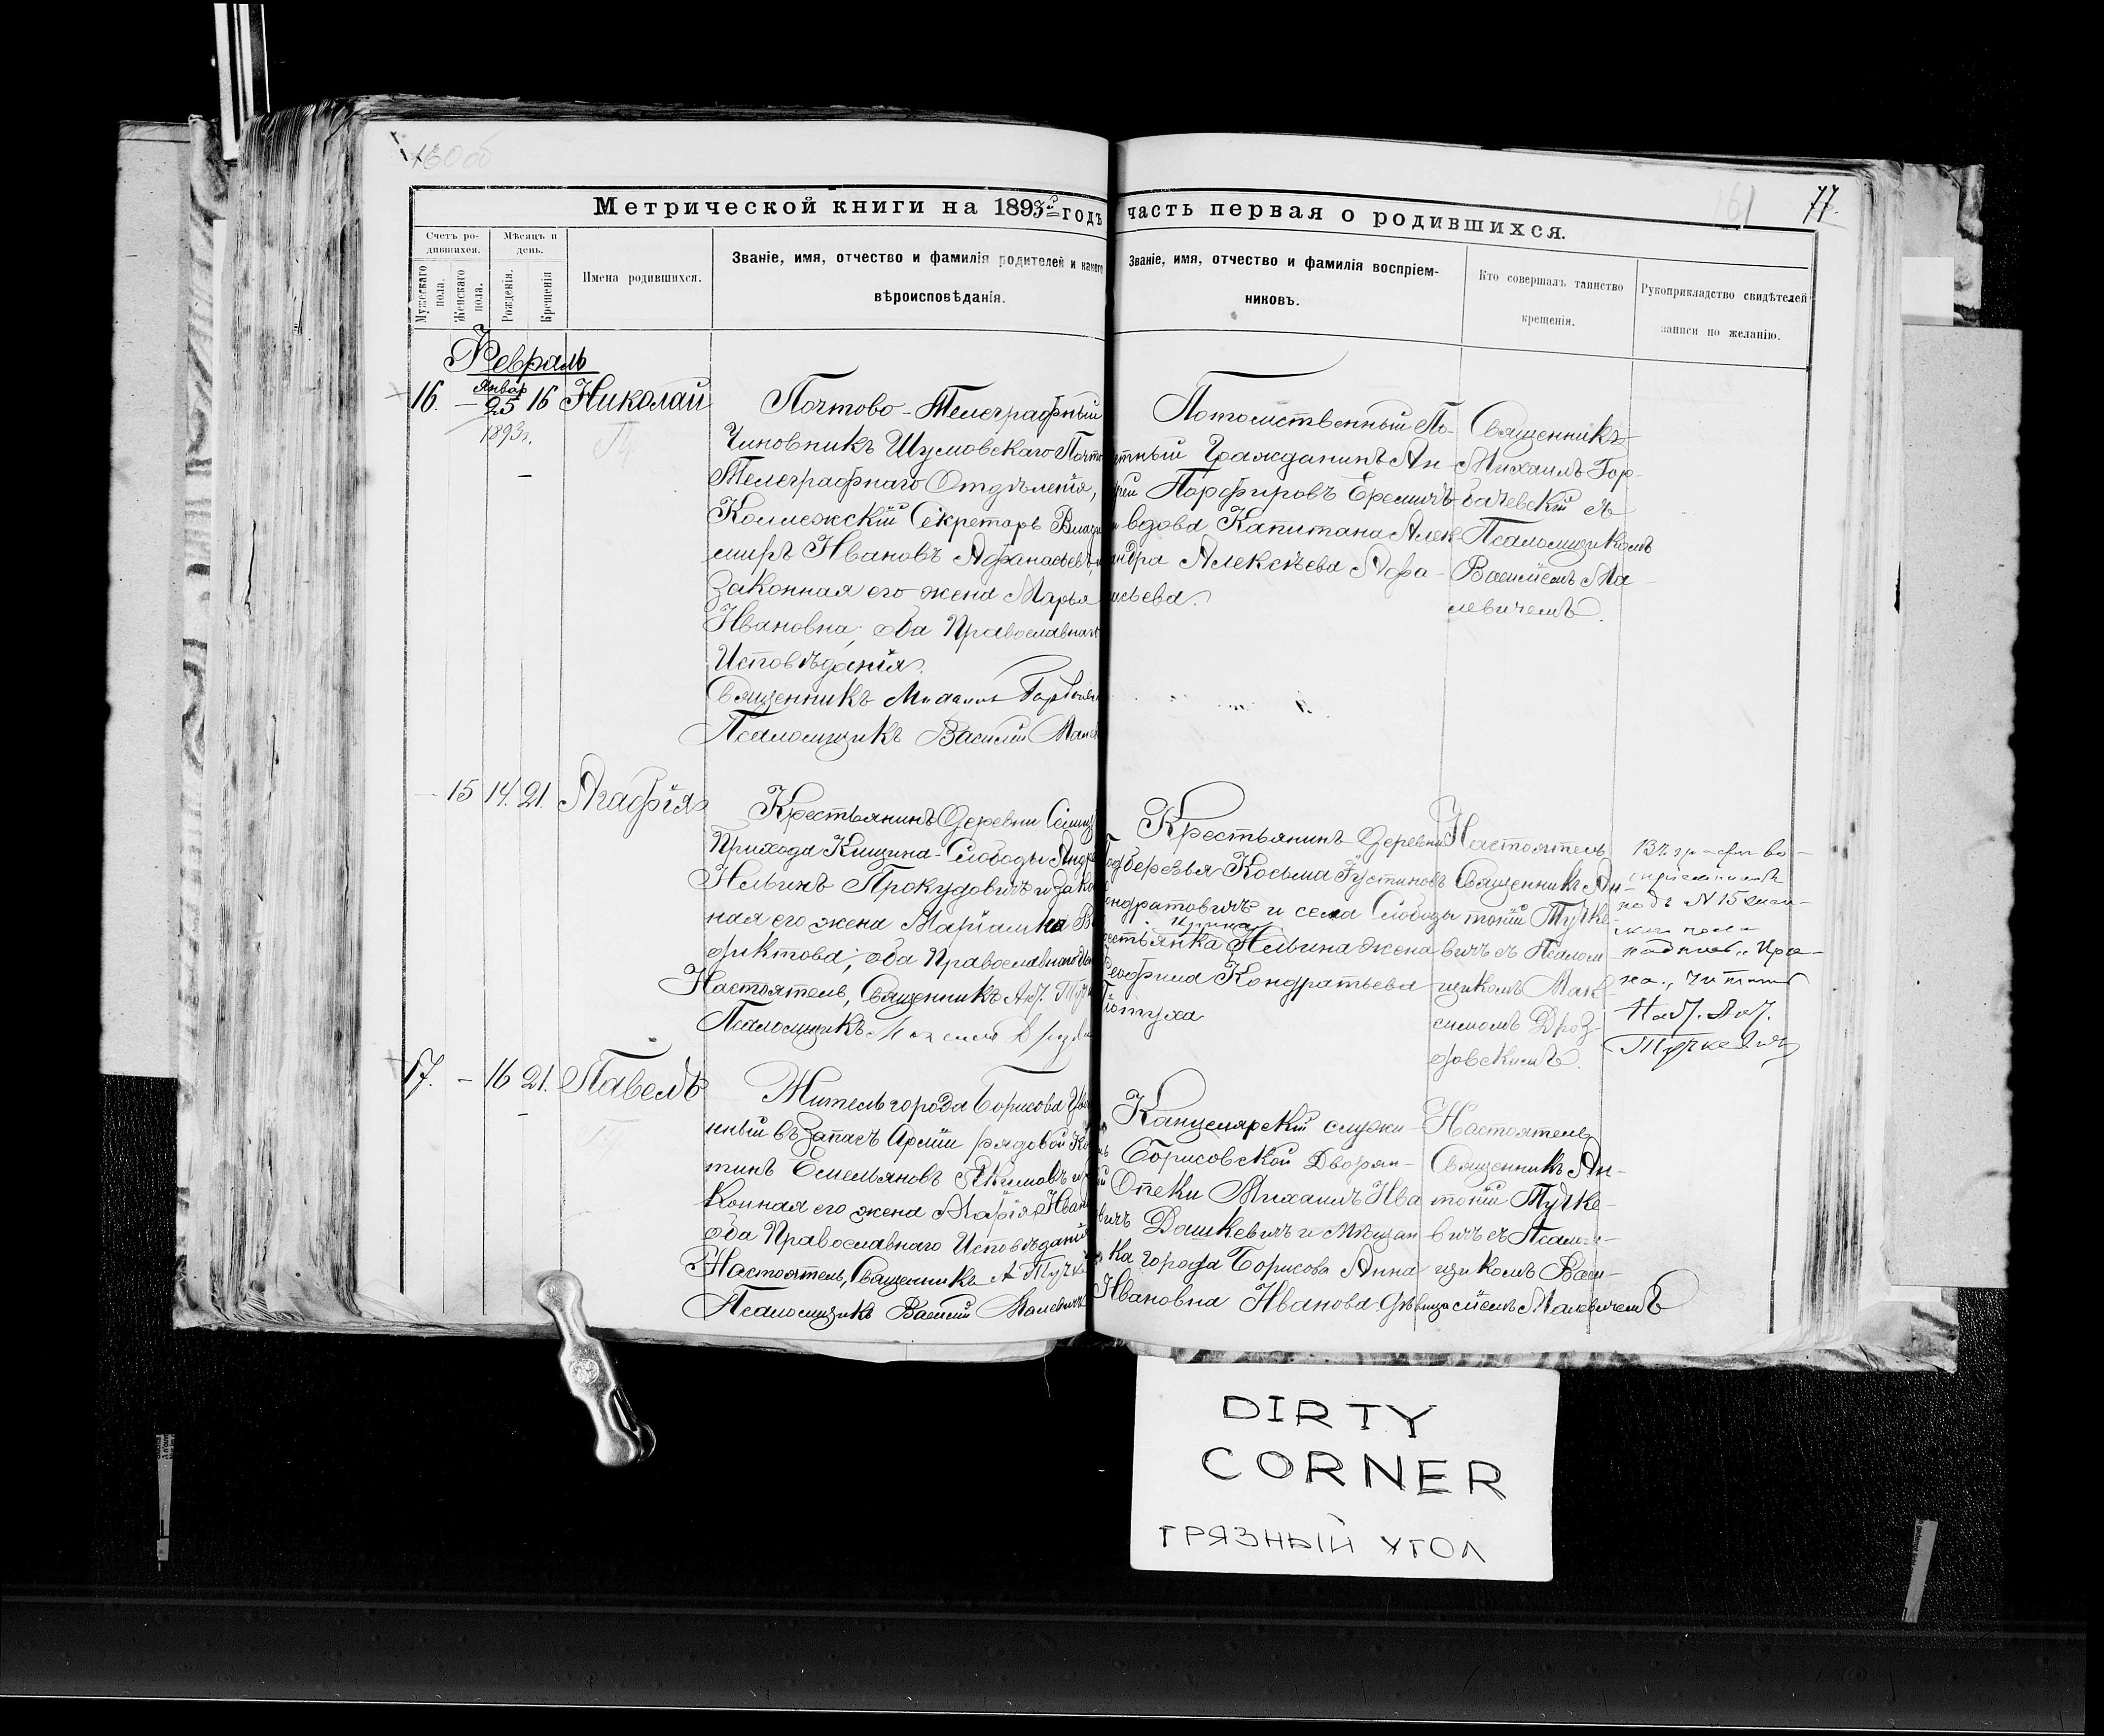 160об
161
77.
Метрической книги на 1893й годъ часть первая о родившихся.
Счетъ родившихся.
Мужескаго пола.
Женскаго пола.
Мѣсяцъ и день.
Рожденія.
Крещенія
Имена родившихся.
Званіе, имя, отчество и фамилія родителей и какого
вѣроисповѣданія.
Званіе, имя, отчество и фамилія воспріем-
никовъ.
Кто совершалъ таинство
крещенія.
Рукоприкладство свидѣтелей
записи по желанію.
Февраль
16. — Январ 25 16 Николай
1893г.
Почтово-Телеграфный
Чиновникъ Шумовскаго Почто
Телеграфнаго Отдѣленія,
Коллежскій Секретарь Влади
миръ Ивановъ Афанасьевъ, и
законная его жена Марья
Ивановна; оба Православнаго
Исповѣданія.
Священникъ Михаилъ
Псаломщикъ Василій
Потомственный По-
етный Гражданинъ Ан-
рей Порфировъ Еремичъ
и вдова Капитана Алек
андра Алексѣева Афа-
асьева.
Священникъ
Михаилъ Гор-
бачевскій съ
Псаломщикомъ
Василіемъ Ма-
левичемъ.
15 14. 21. Агафія
Крестьянинъ Деревни
Прихода Кищина-Слободы
Ильинъ Прокудовичъ и зако
ная его жена Маріамна
фиктова; оба Православнаго
Настоятель, Священникъ Ант.
Псаломщикъ
Крестьянинъ Деревни
одберезья Косьма Іустиновъ
ондратовичъ и села Слободы
Ирина
рестьянка Ильина жена
Ѳеофила Кондратьева
Настоятель
Священникъ Ан-
тоній Тучке-
вичъ съ Псалом
щикомъ Мак-
симомъ Дроз-
довскимъ.
Въ гр-фѣ во-
спріемниковъ
подъ N 15
надпись „Ири-
на„ читать
Наст. Ант.
Тучкевичъ
17. — 16 21. Павелъ
Житель города Борисова
нный въ Запасъ Арміи рядовой
тинъ Емельяновъ Якимовъ и
конная его жена Марія Иван
оба Православнаго Исповѣданій
Настоятель, Священникъ А Тучке
Псаломщикъ Василій Малевичъ
Канцелярскій служи-
Борисовской Дворян-
Опеки Михаилъ Ива
вичъ Дашкевичъ и Мѣщан
ка города Борисова Анна
Ивановна Иванова дѣвица
Настоятель
Священникъ Ан-
тоній Тучке-
вичъ съ Псалом-
щикомъ Васи-
ліемъ Малевичемъ
DIRTY
CORNER
ГРЯЗНЫЙ УГОЛ